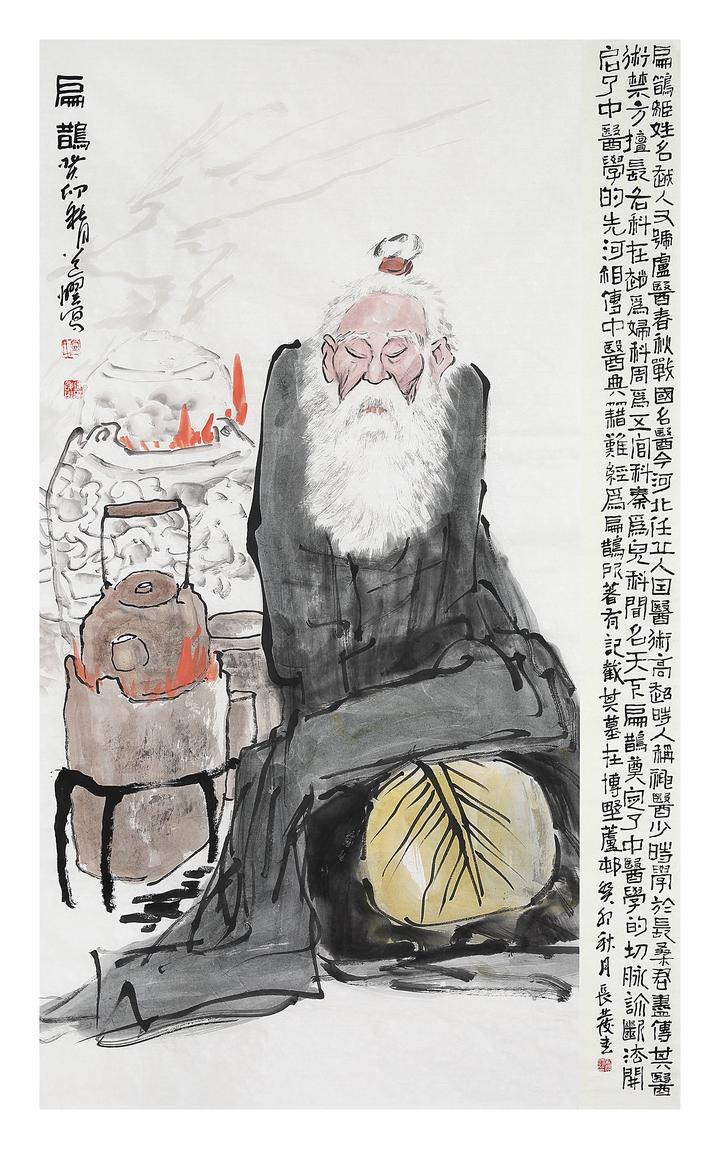 扁鵲姬姓名越人又號盧醫春秋戰國名醫今河北任丘人因醫術高超時人稱神醫少時學於長桑君盡傳其醫
術禁方擅長各科在趙爲婦科周爲五官科秦爲兒科聞名天下扁鵲奠定了中醫學的切脉診斷法開
啟了中醫學的先河相傳中醫典籍難經爲扁鵲所著有記載其墓在博野蘆村癸卯秋月長茂書
扁鵲
癸卯秋月